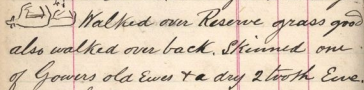 Walked over Reserve grass good
also walked over back. Skinned one
of Gowers old Ewes & a dry 2 tooth Ewe.